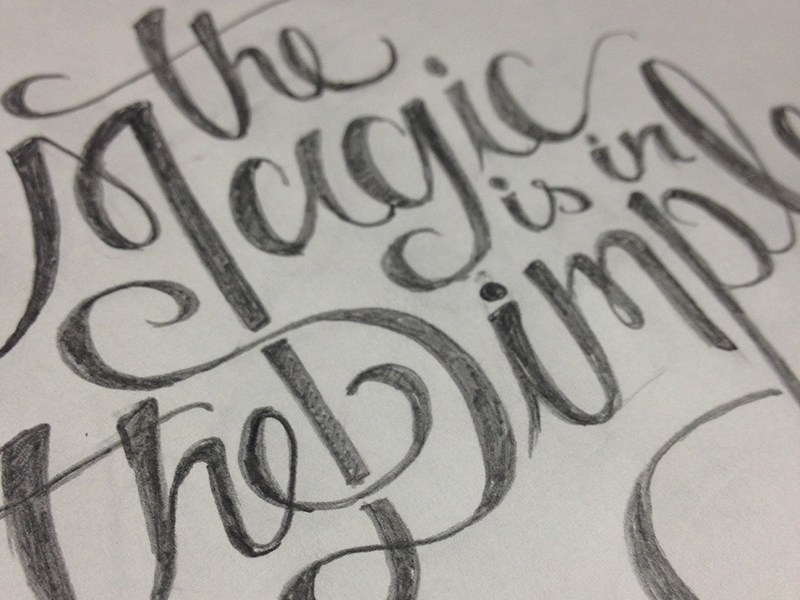 the
Magic
is in
the Dimple